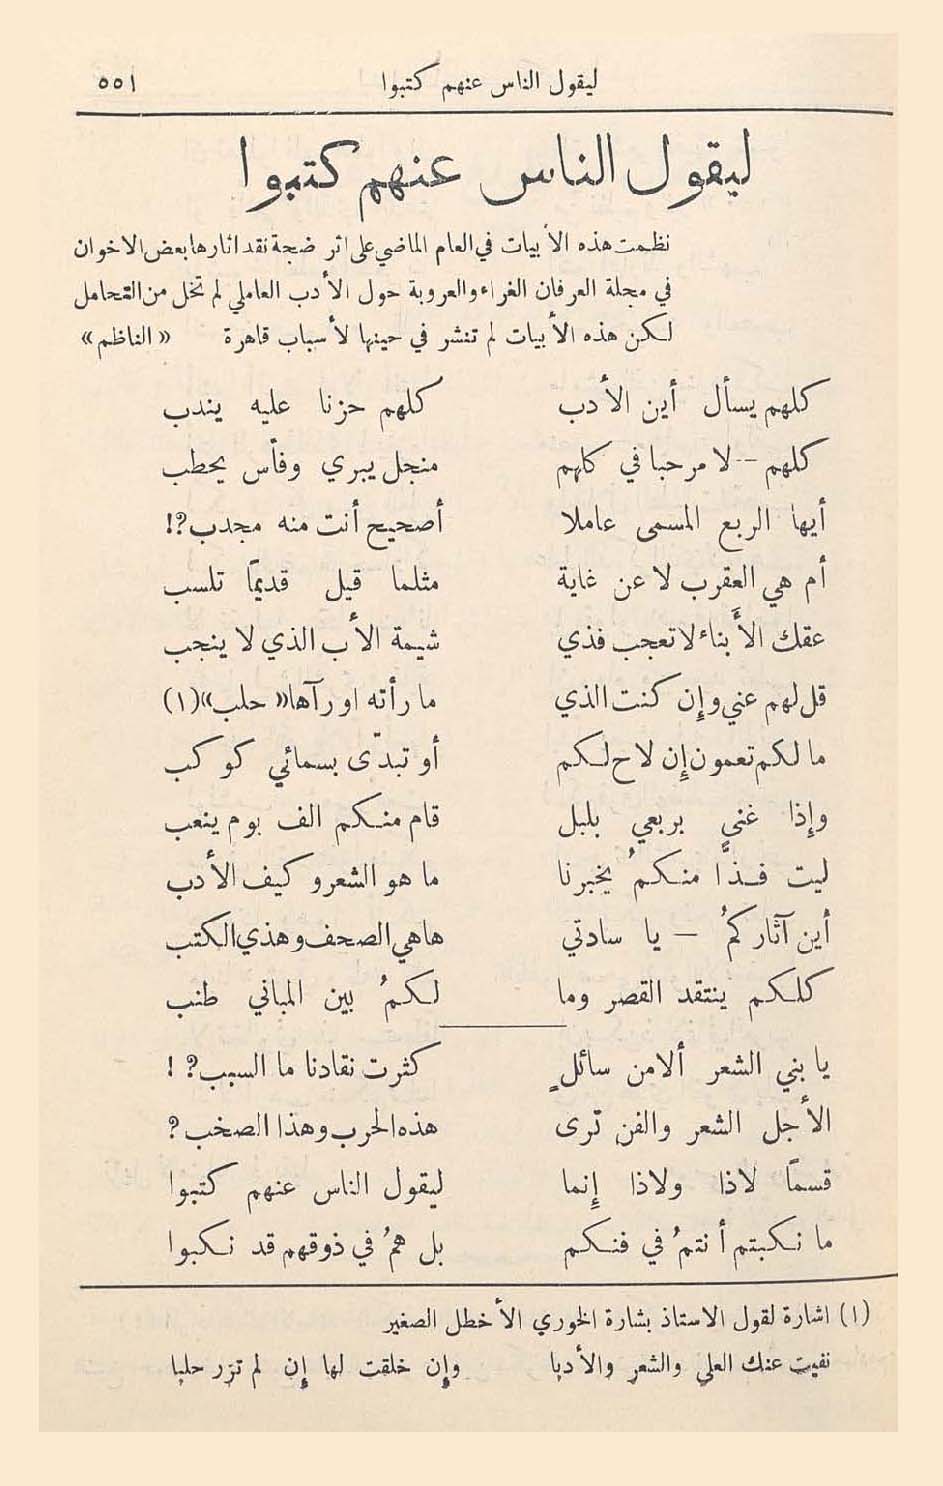 ليقول الناس عنهم كتبوا ٥٥١
ليقول الناس عنهم كتبوا
نظمت هذه الأبيات في العام الماضي على اثر ضجة نقد اثارها بعض الاخوان
في مجلة العرفان الغراء والعروبة حول الأدب العاملي لم تخل من التحامل
لكن هذه الأبيات لم تنشر في حينها لأسباب قاهرة «الناظم»
كلهم يسأل أين الأدب كلهم حزنا عليه يندب
كلهم -- لا مرحبا في كلهم منجل يبري وفأس يحطب
أيها الربع المسمى عاملا أصحيح أنت منه مجدب؟!
أم هي العقرب لا عن غاية مثلما قيل قديمًا تلسب
عقك الأبناء لا تعجب فذي شيمة الأب الذي لا ينجب
قل لهم عني وإن كنت الذي ما رأته او رآها «حلب»(١)
ما لكم تعمون إن لاح لكم أو تبدّى بسمائي كوكب
وإذا غنى بربعي بلبل قام منكم الف بوم ينعب
ليت فذًّا منكمُ يخبرنا ما هو الشعر وكيف الأدب
أين آثاركمُ — يا سادتي هاهي الصحف وهذي الكتب
كلكم ينتقد القصر وما لكمُ بين المباني طنب
يا بني الشعر ألا من سائلٍ كثرت نقادنا ما السبب؟!
الأجل الشعر والفن ترى هذه الحرب وهذا الصخب؟
قسمًا لاذا ولاذا إنما ليقول الناس عنهم كتبوا
ما نكبتم أنتمُ في فنكم بل همُ في ذوقهم قد نكبوا
(١) اشارة لقول الاستاذ بشارة الخوري الأخطل الصغير
نفيت عنك العلي والشعر والأدبا وإن خلقت لها إن لم تزر حلبا